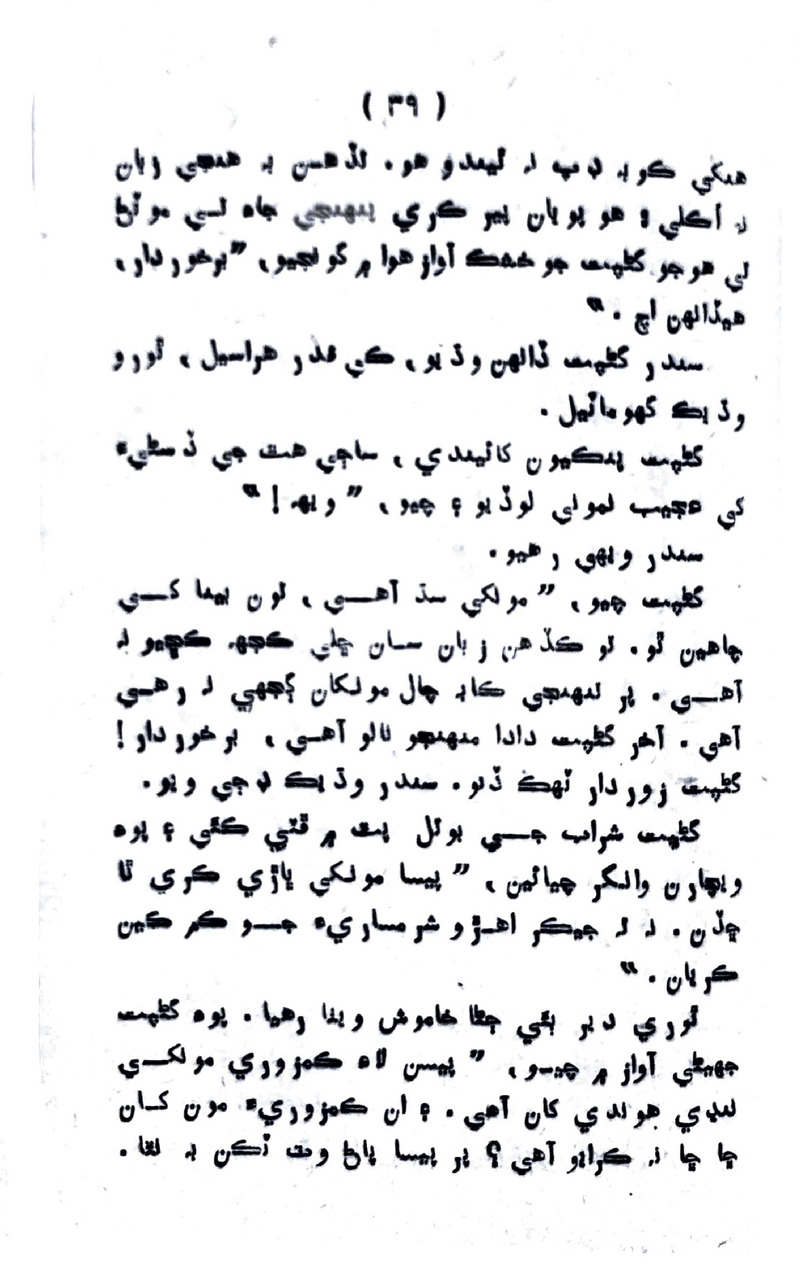 ( ۳۹ )
هنکي ڪو بہ ڊپ نہ ٿيندو هو. تڏهن بہ هنجي زبان
نہ اُڪلي ۽ هو پويان پير ڪري پنهنجي جاءِ تي موٽڻ
تي هو جو گڻپت جو خشڪ آواز هوا ۾ گونجيو، ”برخوردار،
هيڏانهن اچ.“
سندر گڻپت ڏانهن وڌيو، ڪي قدر هراسيل، ٿورو
وڌيڪ گهوماٽيل.
گڻپت پنڪيون کائيندي، ساڄي هٿ جي ڏسڻيءَ
کي عجيب نموني لوڏيو ۽ چيو، ”ويهہ!“
سندر ويهي رهيو.
گڻپت چيو، ”مونکي سڌ آهي، تون پيسا کسي
چاهين ٿو. تو ڪڏهن زبان سان ڇلي ڪجهہ ڪڇيو نہ
آهي. پر تنهنجي ڪا بہ چال مونکان ڳجهي نہ رهي
آهي. آخر گڻپت دادا منهنجو نالو آهي، برخوردار!
گڻپت زوردار ٽهڪ ڏنو. سندر وڌيڪ ڊڄي ويو.
گڻپت شراب جي بوتل پٽ ۾ ڦٽي ڪئي ۽ پوءِ
ويچارن وانگر چيائين، ”پيسا مونکي ڀاڙي ڪري ٿا
ڇڏن. نہ تہ جيڪر اهڙو شرمساريءَ جو ڪم ڪين
ڪريان.“
ٿوري دير ٻئي ڄڻا خاموش ويٺا رهيا. پوءِ گڻپت
جهيڻي آواز ۾ چيو، ”پيسن لاءِ ڪمزوري مونکي
ننڍي هوندي کان آهي. ۽ ان ڪمزوريءَ مون کان
ڇا ڇا نہ ڪرايو آهي؟ پر پيسا پاڻ وٽ ٽڪن بہ نٿا.